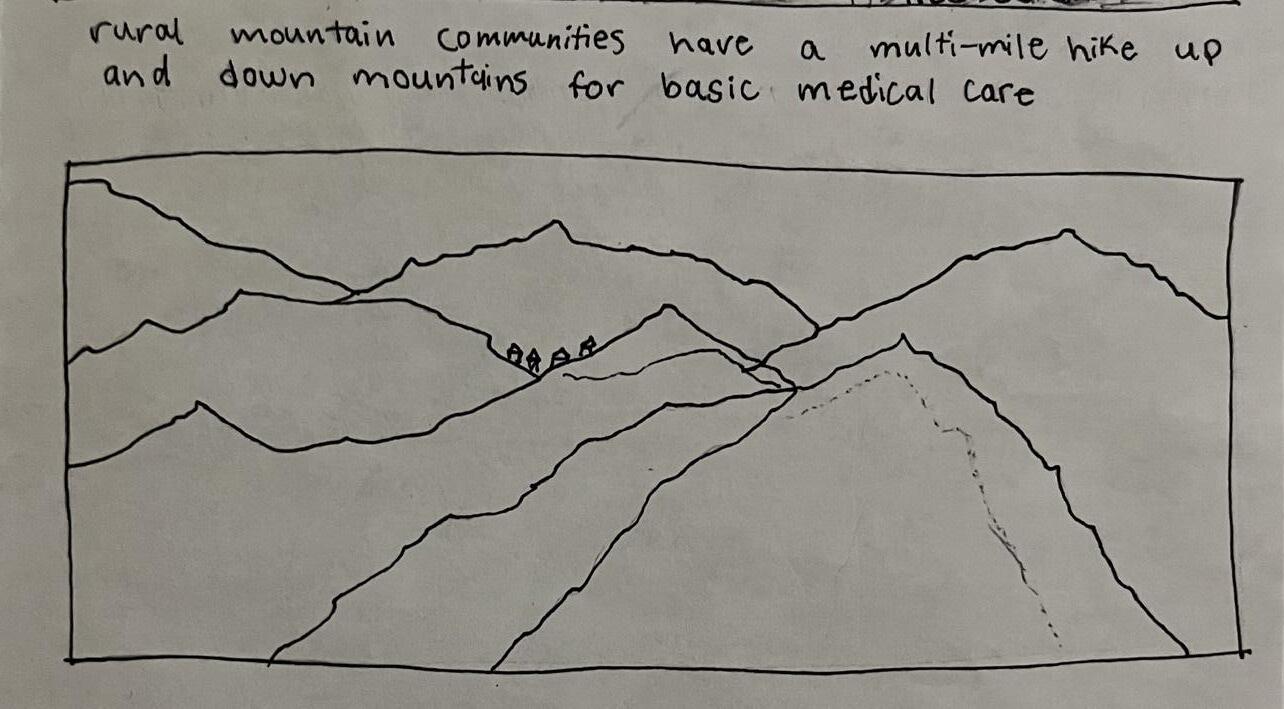 rural mountain communities have a multi-mile hike up
and down mountains for basic medical care